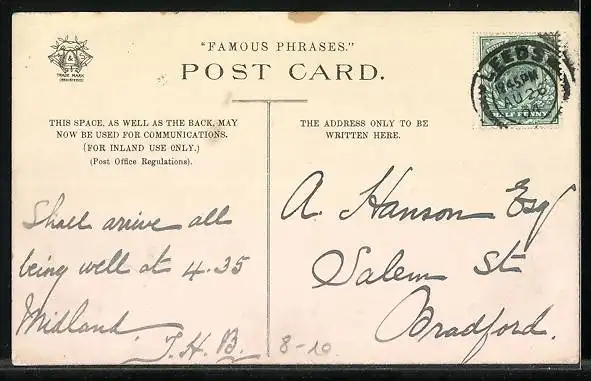 "FAMOUS PHRASES."
POST CARD.
TRADE MARK
THIS SPACE, AS WELL AS THE BACK, MAY
NOW BE USED FOR COMMUNICATIONS.
(FOR INLAND USE ONLY.)
(Post Office Regulations).
Shall arrive all
being well at 4.35
Midland.
J. H. B.
8-10
THE ADDRESS ONLY TO BE
WRITTEN HERE.
A. Hanson Esq
Salem St
Bradford.
LEEDS
45PM
AU 26
HALFPENNY